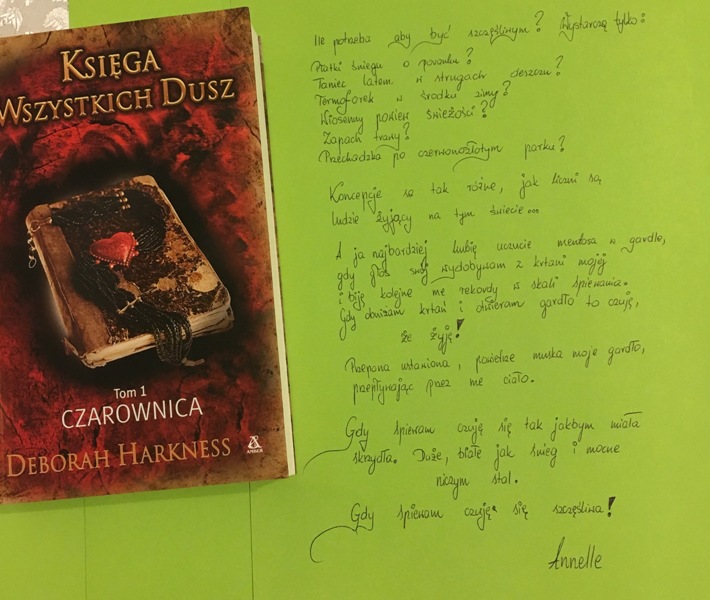 KSIĘGA
WSZYSTKICH DUSZ
Tom 1
CZAROWNICA
AMBER
DEBORAH HARKNESS
Ile potrzeba aby być szczęśliwym? Wystarczą tylko:
Płatki śniegu o poranku?
Taniec latem w strugach deszczu?
Termoforek w środku zimy?
Wiosenny powiew świeżości?
Zapach trawy?
Przechadzka po czerwonozłotym parku?
Koncepcje są tak różne, jak liczni są
ludzie żyjący na tym świecie...
A ja najbardziej lubię uczucie mentosa w gardle,
gdy głos swój wydobywam z krtani mojej
i biję kolejne me rekordy w skali śpiewania.
Gdy obniżam krtań i otwieram gardło to czuję,
że żyję!
Przepona ustawiona, powietrze muska moje gardło,
przepływając przez me ciało.
Gdy śpiewam czuję się tak jakbym miała
skrzydła. Duże, białe jak śnieg i mocne
niczym stal.
Gdy śpiewam czuję się szczęśliwa!
Annelle